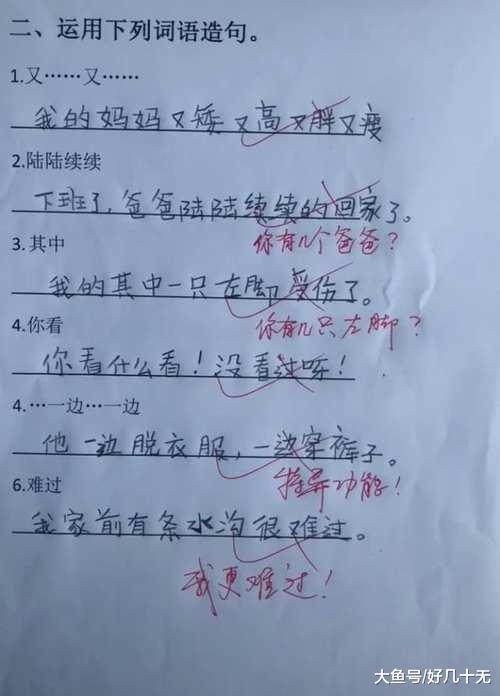 二、运用下列词语造句。
1.又……又……
我的妈妈又矮又高又胖又瘦
2.陆陆续续
下班了，爸爸陆陆续续的回家了。
你有几个爸爸？
3.其中
我的其中一只左脚受伤了。
你有几只左脚？
4.你看
你看什么看！没看过呀！
4.…一边…一边
他一边脱衣服，一边穿裤子。
特异功能！
6.难过
我家前有条水沟很难过。
我更难过！
大鱼号/好几十无